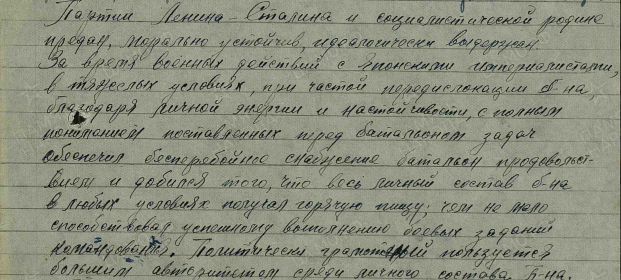 Партии Ленина-Сталина и социалистической родине
предан, морально устойчив, идеалогически выдержан.
За время военных действий с японскими империалистами,
в тяжелых условиях, при частой передислокации б-на,
благодаря личной энергии и настойчивости, с полным
пониманием поставленных перед батальоном задач
обеспечил бесперебойное снабжение батальон продовольст-
вием и добился того, что весь личный состав б-на
в любых условиях получал горячую пищу; чем не мало
способствовал успешному выполнению боевых заданий
командования. Политически грамотный пользуется
большим авторитетом среди личного состава б-на.